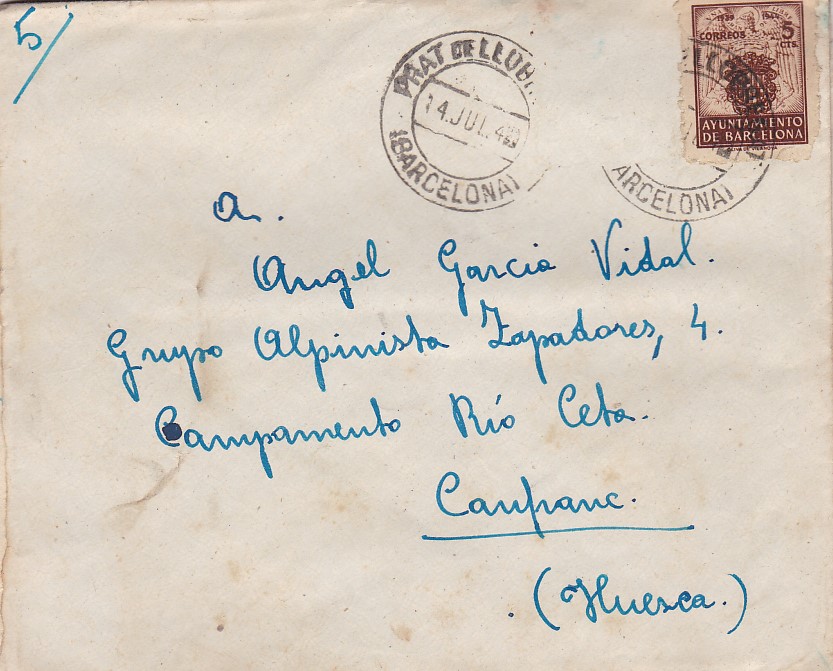 5/
PRAT DE LLOB
14. JUL. 4
(BARCELONA)
1939
CORREOS
5
CTS.
AYUNTAMIENTO
DE BARCELONA
ARCELONA)
A.
Angel Garcia Vidal.
Grupo Alpinista Zapadores, 4.
Campamento Río Ceta.
Canfranc.
(Huesca.)